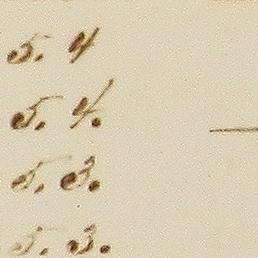 5. 4
5. 4.
5. 3.
5. 3.